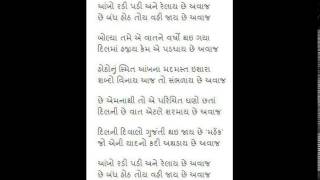 આંખો રડી પડી અને રેલાય છે અવાજ
છે બંધ હોઠ તોય વહી જાય છે અવાજ
બોલ્યા તમે એ વાતને વર્ષો થઇ ગયા
દિલમાં હજીય કેમ એ પડઘાય છે અવાજ
હોઠોનું સ્મિત આંખના મદમસ્ત ઇશારા
શબ્દો વિનાય આજ તો સંભળાય છે અવાજ
છે એમનાથી તો એ પરિચિત ઘણો છતાં
દિલની છે વાત એટલે શરમાય છે અવાજ
દિલની દિવાલો ગુંજતી થઇ જાય છે 'મહેક'
જો એની યાદનો કદી અથડાય છે અવાજ
આંખો રડી પડી અને રેલાય છે અવાજ
છે બંધ હોઠ તોય વહી જાય છે અવાજ